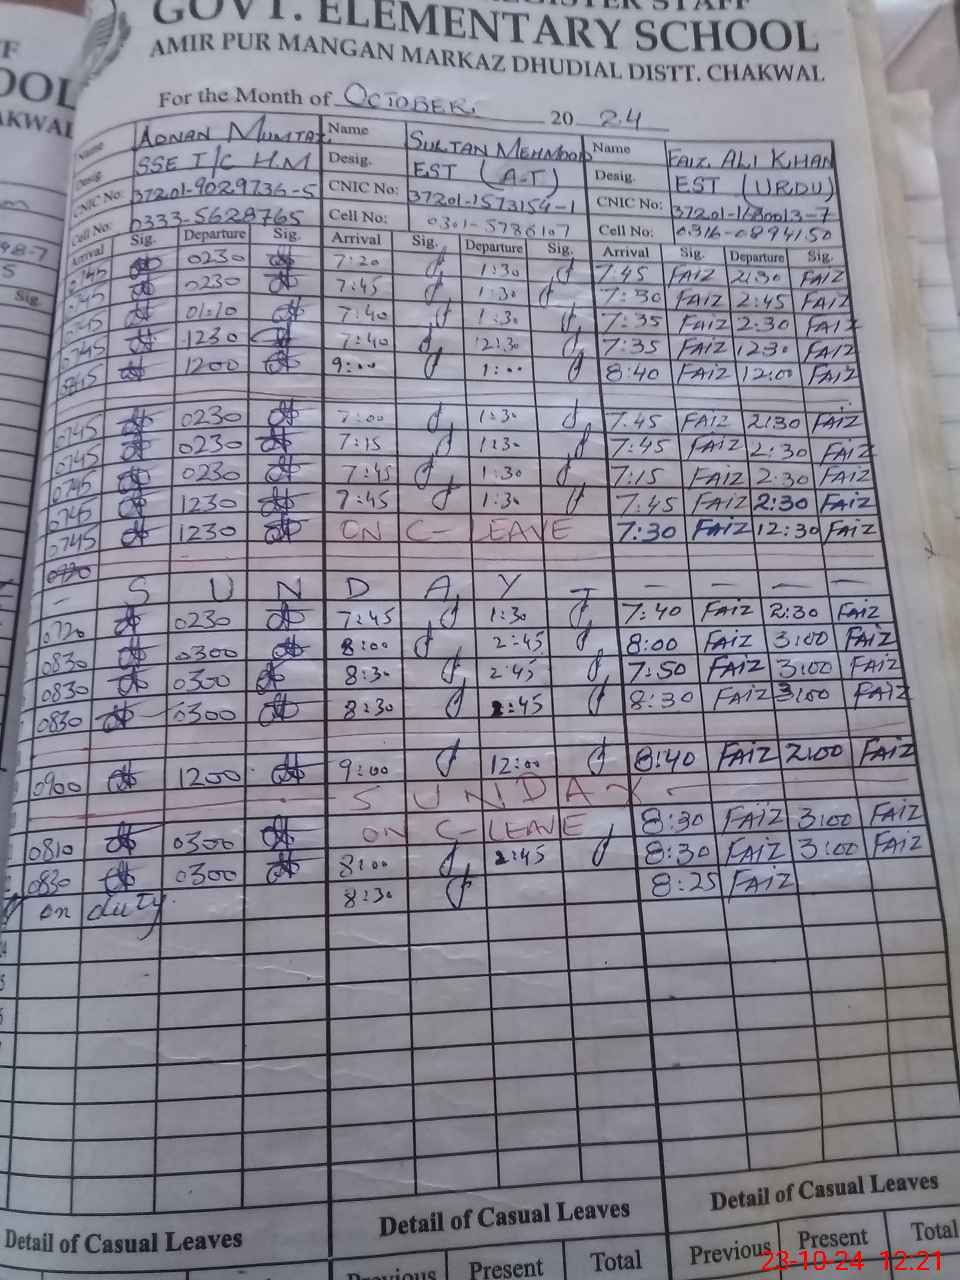 REGISTER STAFF
GOVT. ELEMENTARY SCHOOL
AMIR PUR MANGAN MARKAZ DHUDIAL DISTT. CHAKWAL
For the Month of OCTOBER. 20 24
Name ADNAN MUMTAZ Name SULTAN MEHMOOD Name FAIZ ALI KHAN
Desig. SSE I/C H.M Desig. EST (A-T) Desig. EST (URDU)
CNIC No: 37201-9029736-5 CNIC No: 37201-1573154-1 CNIC No: 37201-1680013-7
Cell No: 0333-5628765 Cell No: 0301-5786107 Cell No: 0316-0894150
Arrival Sig. Departure Sig. Arrival Sig. Departure Sig. Arrival Sig. Departure Sig.
0745 0230 7:20 1:30 7:45 FAIZ 2:30 FAIZ
0745 0230 7:45 1:30 7:30 FAIZ 2:45 FAIZ
0745 01:10 7:40 1:30 7:35 FAIZ 2:30 FAIZ
0745 1230 7:40 12:30 7:35 FAIZ 1230 FAIZ
0845 1200 9:00 1:00 8:40 FAIZ 12:00 FAIZ
0745 0230 7:00 1:30 7:45 FAIZ 2:30 FAIZ
0745 0230 7:15 1:30 7:45 FAIZ 2:30 FAIZ
0745 0230 7:45 1:30 7:15 FAIZ 2:30 FAIZ
0745 1230 7:45 1:30 7:45 FAIZ 2:30 FAIZ
0745 1230 ON C-LEAVE 7:30 FAIZ 12:30 FAIZ
— S U N D A Y — — — — —
0720 0230 7:45 1:30 7:40 FAIZ 2:30 FAIZ
0830 0300 8:00 2:45 8:00 FAIZ 3:00 FAIZ
0830 0300 8:30 2:45 7:50 FAIZ 3:00 FAIZ
0830 0300 8:30 2:45 8:30 FAIZ 3:00 FAIZ
0900 1200 9:00 12:00 8:40 FAIZ 2:00 FAIZ
— S U N D A Y —
0810 0300 ON C-LEAVE 8:30 FAIZ 3:00 FAIZ
0830 0300 8:00 2:45 8:30 FAIZ 3:00 FAIZ
on duty. 8:30 8:25 FAIZ
Detail of Casual Leaves Detail of Casual Leaves Detail of Casual Leaves
Previous Present Total Previous Present Total
23-10-24 12:21